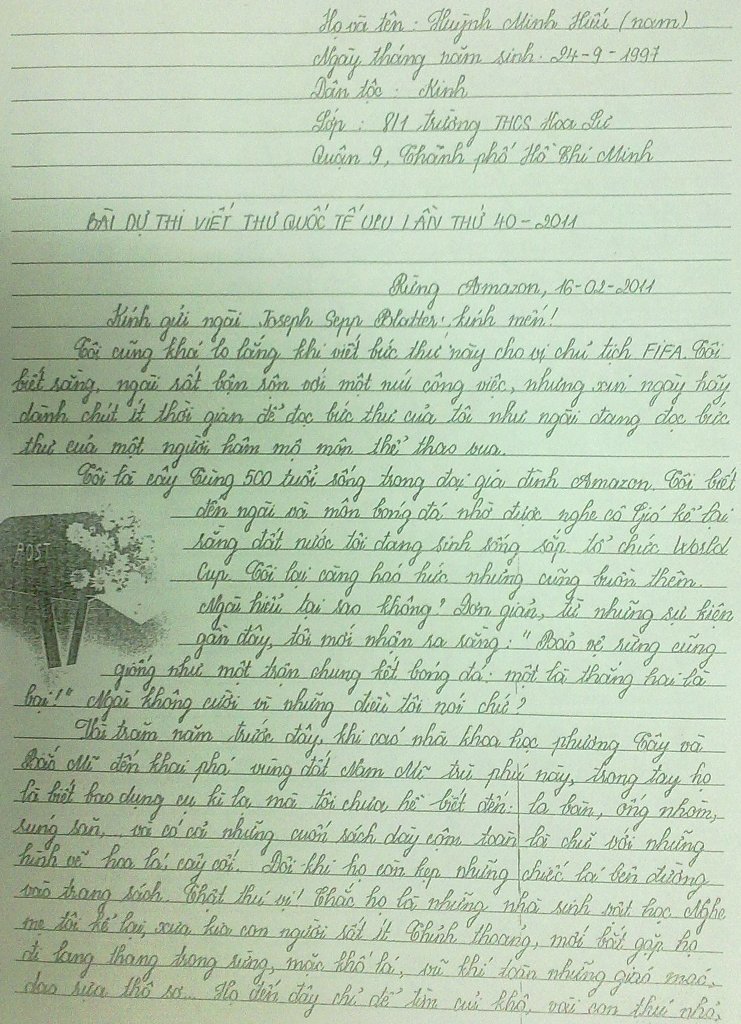 Họ và tên : Huỳnh Minh Hiếu (nam)
Ngày tháng năm sinh : 24-9-1997
Dân tộc : Kinh
Lớp : 8/1 trường THCS Hoa Lư
Quận 9, Thành phố Hồ Chí Minh
BÀI DỰ THI VIẾT THƯ QUỐC TẾ UPU LẦN THỨ 40-2011
Rừng Amazon, 16-02-2011
Kính gửi ngài Joseph Sepp Blatter kính mến!
Tôi cũng khá lo lắng khi viết bức thư này cho vị chủ tịch FIFA. Tôi
biết rằng, ngài rất bận rộn với một núi công việc, nhưng xin ngày hãy
dành chút ít thời gian để đọc bức thư của tôi như ngài đang đọc bức
thư của một người hâm mộ môn thể thao vua.
Tôi là cây Tùng 500 tuổi sống trong đại gia đình Amazon. Tôi biết
đến ngài và môn bóng đá nhờ được nghe cô Gió kể lại
POST
rằng đất nước tôi đang sinh sống sắp tổ chức World
Cup. Tôi lại càng háo hức nhưng cũng buồn thêm.
Ngài hiểu tại sao không? Đơn giản, từ những sự kiện
gần đây, tôi mới nhận ra rằng: "Bảo vệ rừng cũng
giống như một trận chung kết bóng đá: một là thắng hai là
bại!" Ngài không cười vì những điều tôi nói chứ?
Vài trăm năm trước đây, khi các nhà khoa học phương Tây và
Bắc Mĩ đến khai phá vùng đất Nam Mĩ trù phú này, trong tay họ
là biết bao dụng cụ kì lạ mà tôi chưa hề biết đến: la bàn, ống nhòm,
súng săn,... và có cả những cuốn sách dày cộm toàn là chữ với những
hình vẽ hoa lá, cây cối. Đôi khi họ còn kẹp những chiếc lá bên đường
vào trang sách. Thật thú vị! Chắc họ là những nhà sinh vật học. Nghe
mẹ tôi kể lại, xưa kia con người rất ít. Thỉnh thoảng, mới bắt gặp họ
đi lang thang trong rừng, mặc khố lá, vũ khí toàn những giáo mác,
dao rựa thô sơ... Họ đến đây chỉ để tìm củi khô, vài con thú nhỏ,